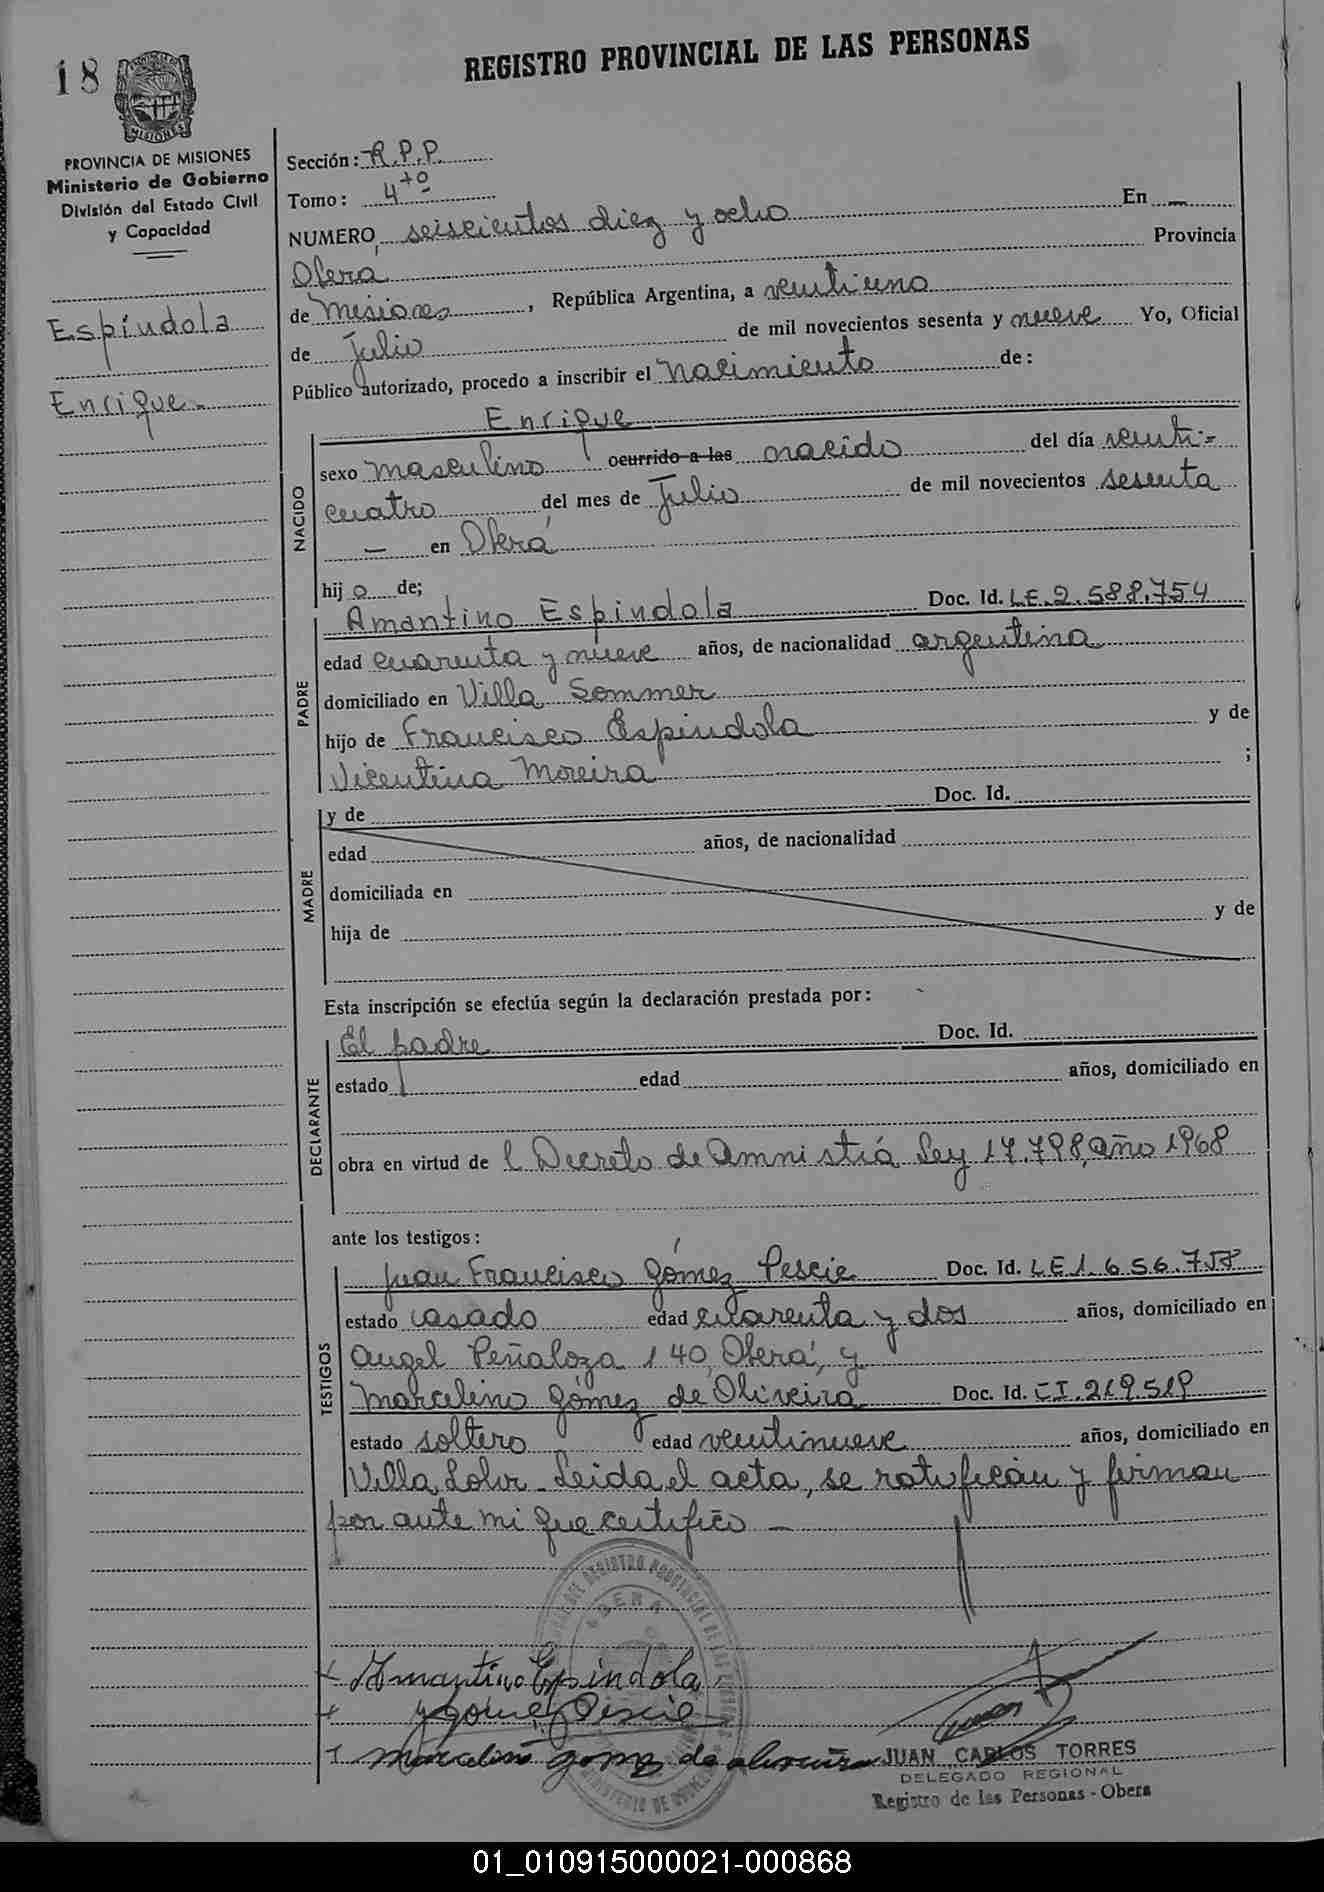 18
REGISTRO PROVINCIAL DE LAS PERSONAS
MISIONES
PROVINCIA DE MISIONES
Ministerio de Gobierno
División del Estado Civil
y Capacidad
Espíndola
Enrique.-
Sección: R.P.P.
Tomo: 4to
NUMERO, seiscientos diez y ocho En —
Oberá Provincia
de Misiones, República Argentina, a ventiuno
de Julio de mil novecientos sesenta y nueve Yo, Oficial
Público autorizado, procedo a inscribir el nacimiento de:
Enrique
NACIDO
sexo masculino ocurrido a las nacido del día venti-
cuatro del mes de Julio de mil novecientos sesenta
— en Oberá
hijo de;
PADRE
Amantino Espindola Doc. Id. L.E. 2.588.754
edad cuarenta y nueve años, de nacionalidad argentina
domiciliado en Villa Sommer
hijo de Francisco Espindola y de
Vicentina Moreira ;
MADRE
y de Doc. Id.
edad años, de nacionalidad
domiciliada en
hija de y de
Esta inscripción se efectúa según la declaración prestada por:
DECLARANTE
El padre Doc. Id.
estado edad años, domiciliado en
obra en virtud de l Decreto de Amnistiá Ley 17.798, año 1968
ante los testigos:
TESTIGOS
Juan Francisco Gómez Pescie Doc. Id. L E 1.656.7
estado casado edad cuarenta y dos años, domiciliado en
Angel Peñaloza 140, Oberá, y
Marcelino Gómez de Oliveira Doc. Id. C I. 219.519
estado soltero edad ventinueve años, domiciliado en
Villa Lohr - Leida el acta, se ratifican y firman
por ante mi que certifico —
Amantino Espindola
Gomez Pescie
Marcelino gomez de oliveira
JUAN CARLOS TORRES
DELEGADO REGIONAL
Registro de las Personas - Obera
01_010915000021-000868